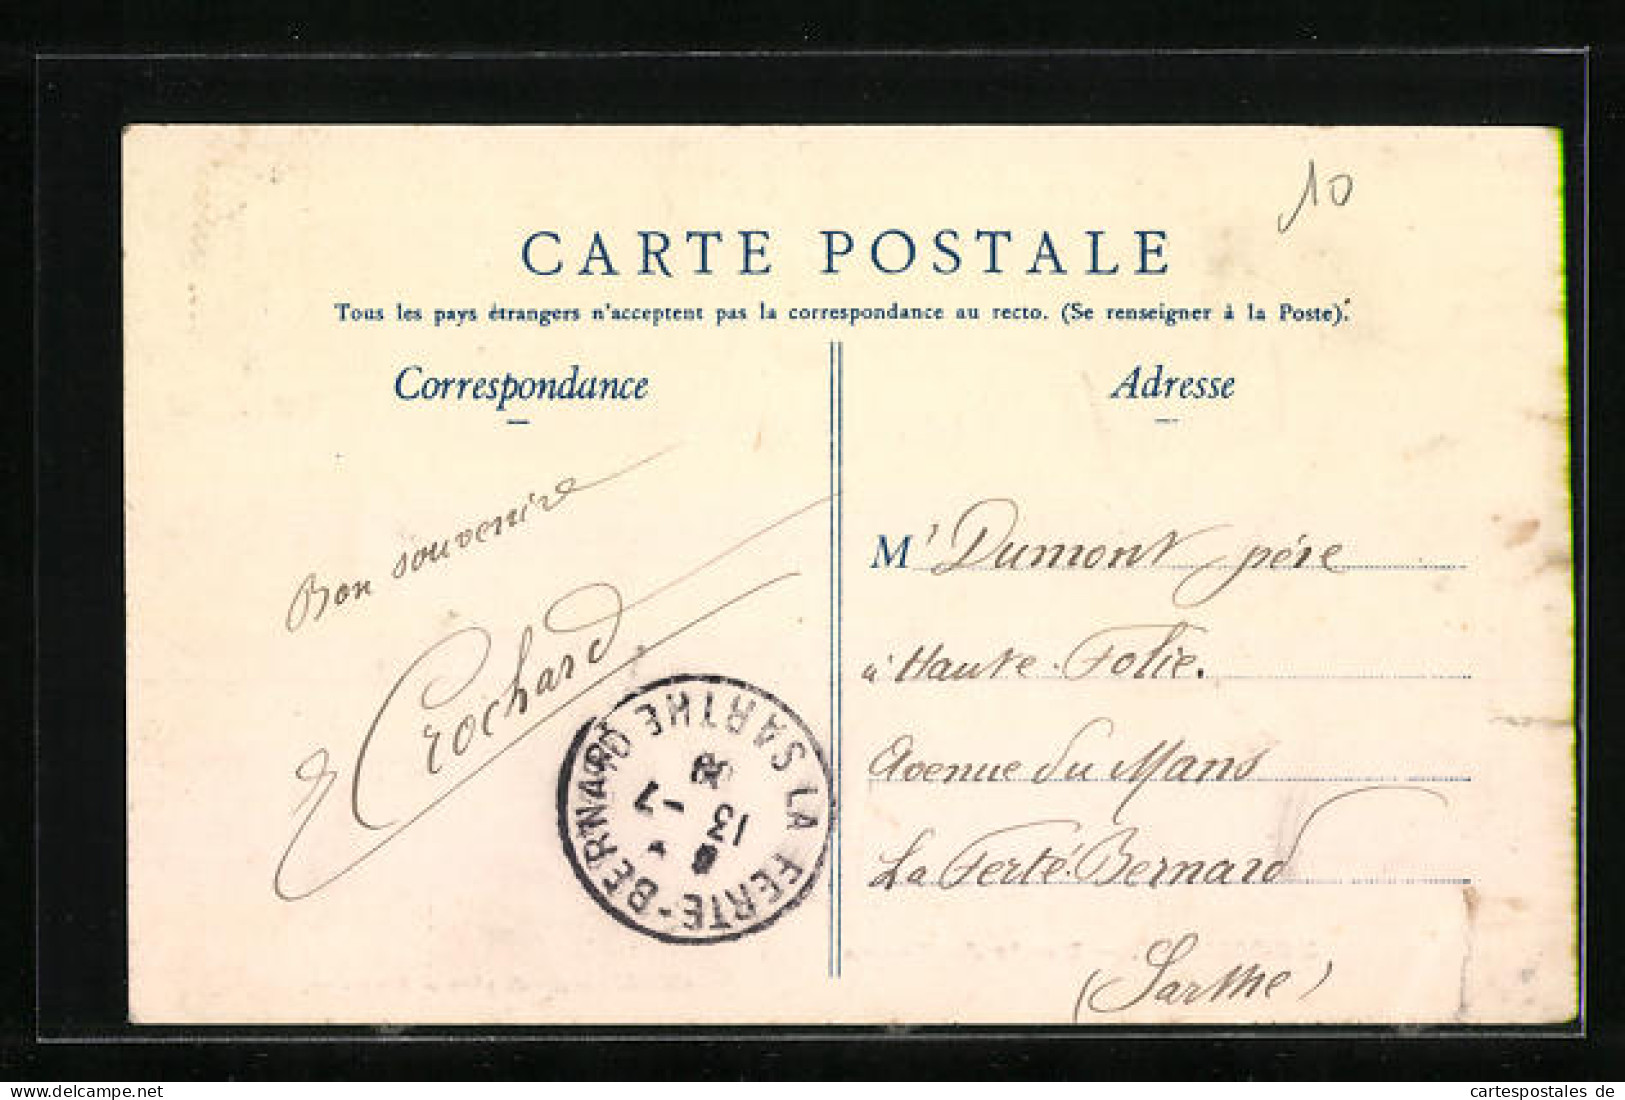 10
CARTE POSTALE
Tous les pays étrangers n'acceptent pas la correspondance au recto. (Se renseigner à la Poste).
Correspondance
Adresse
Bon souvenire
Crochard
M' Dumont père
à Haute-Folie.
Avenue du Mans
La Ferté-Bernard
(Sarthe)
LA FERTE-BERNARD
SARTHE
13
-7
08
delcampe.net
cartespostales de